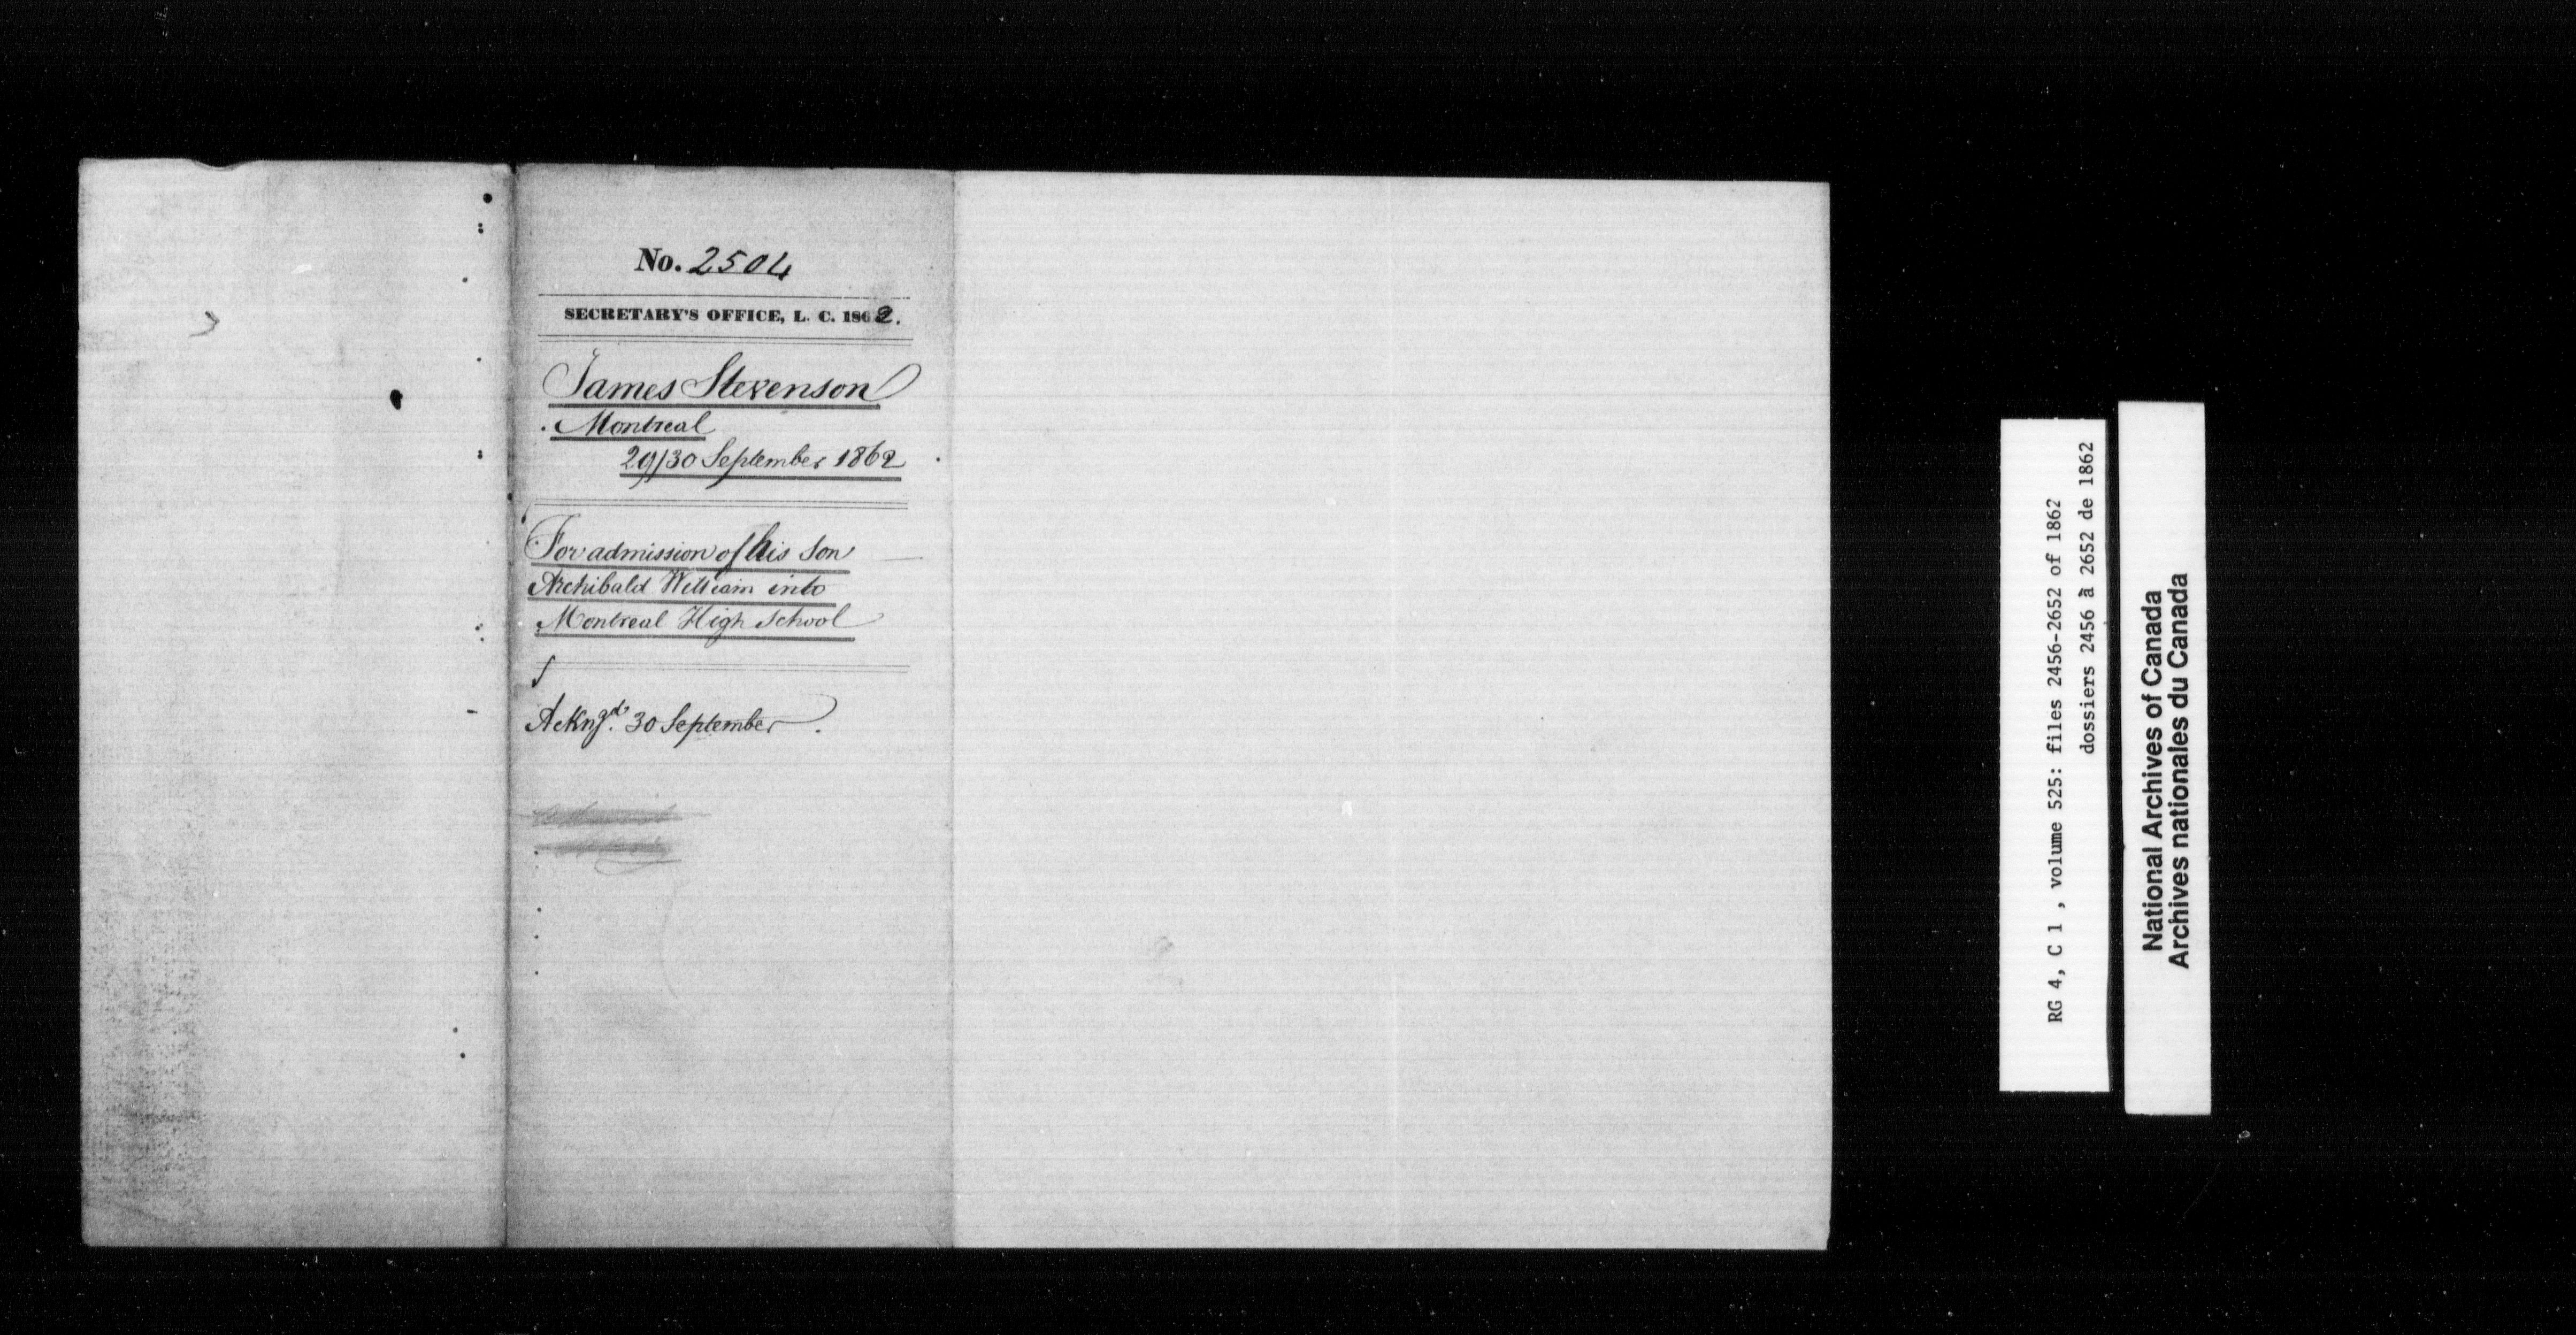 No. 2504
SECRETARY'S OFFICE, L. C. 1862.
James Stevenson
Montreal
29/30 September 1862
For admission of his son
Archibald William into
Montreal High School
Ackngd. 30 September.
RG 4, C 1 , volume 525: files 2456-2652 of 1862
dossiers 2456 à 2652 de 1862
National Archives of Canada
Archives nationales du Canada